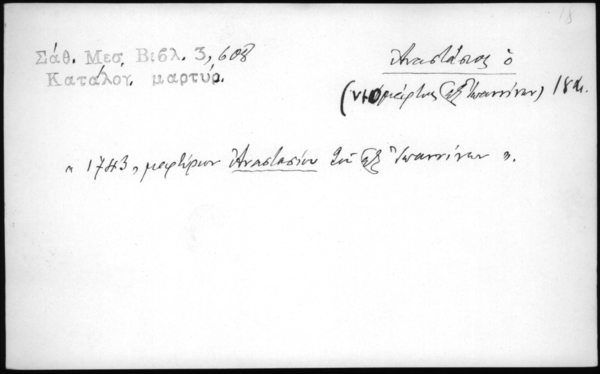 18
Σάθ. Μεσ. Βιβλ. 3, 608
Καταλογ. μαρτύρ.
Ἀναστάσιος ὁ
(νεομάρτυς ἐξ Ἰωαννίνων) 18 αι.
« 1743, μαρτύριον Ἀναστασίου τοῦ ἐξ Ἰωαννίνων ».